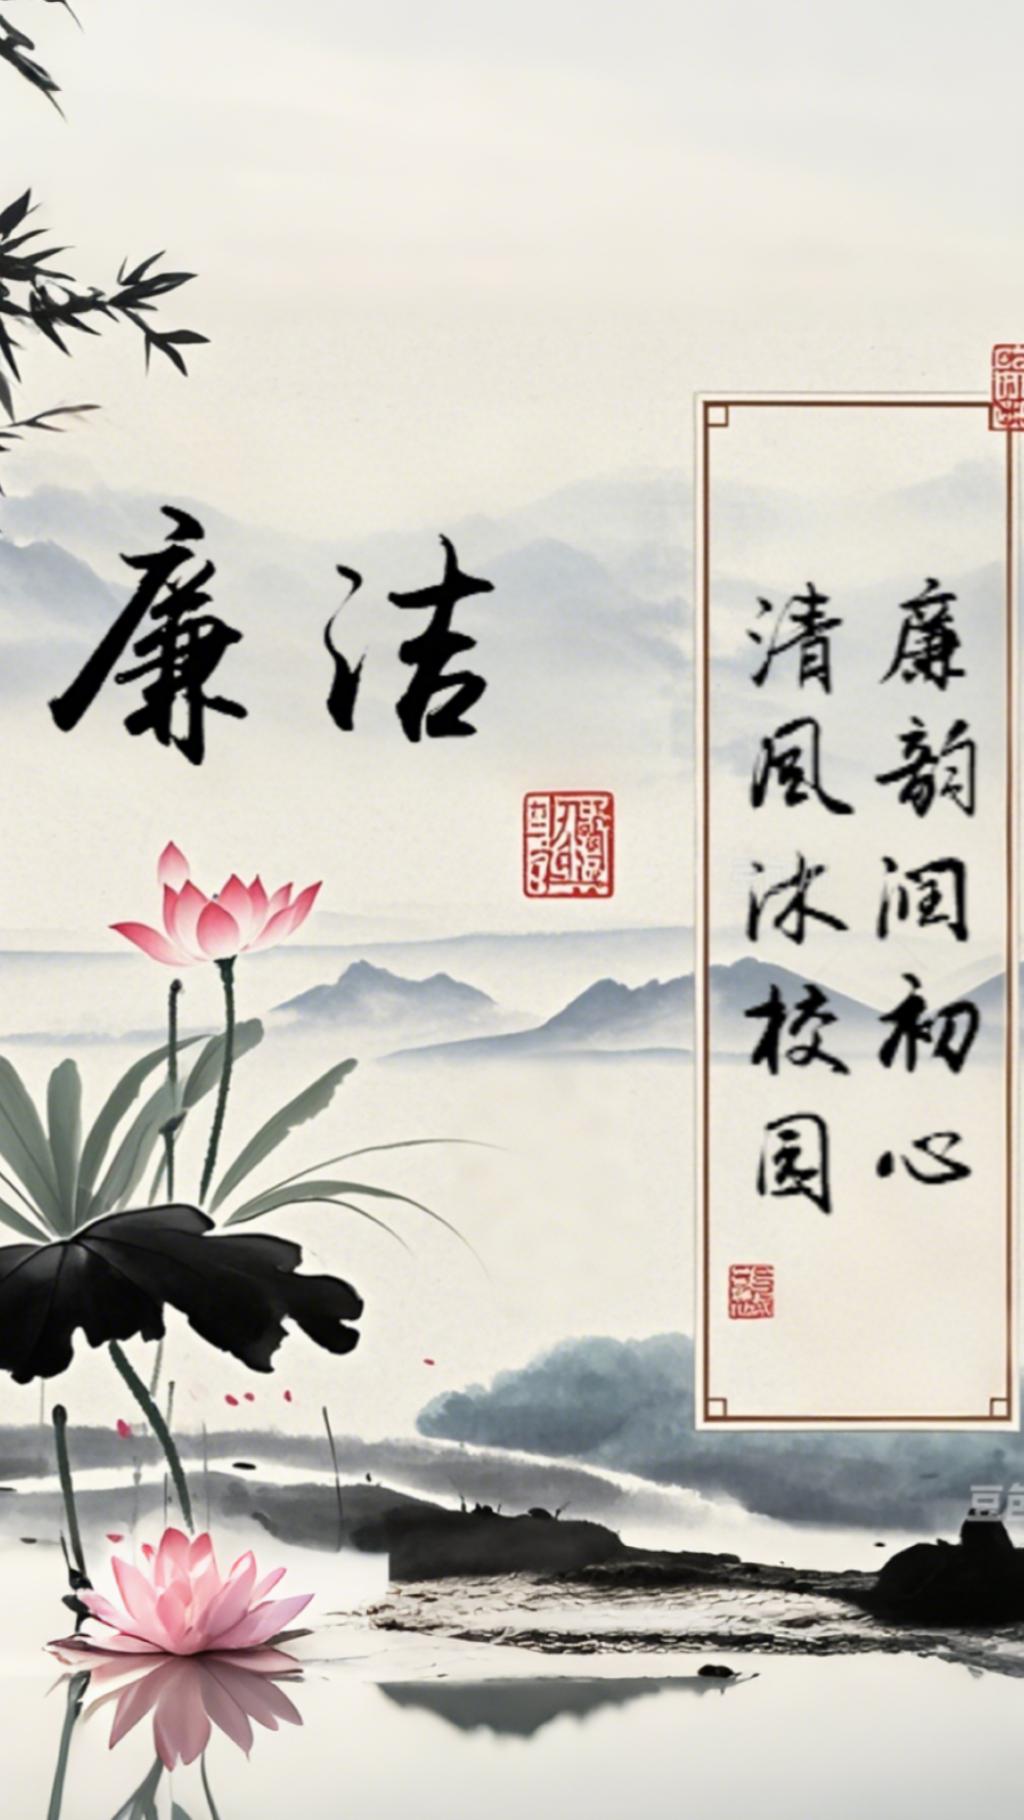 廉洁
廉韵润初心
清风沐校园